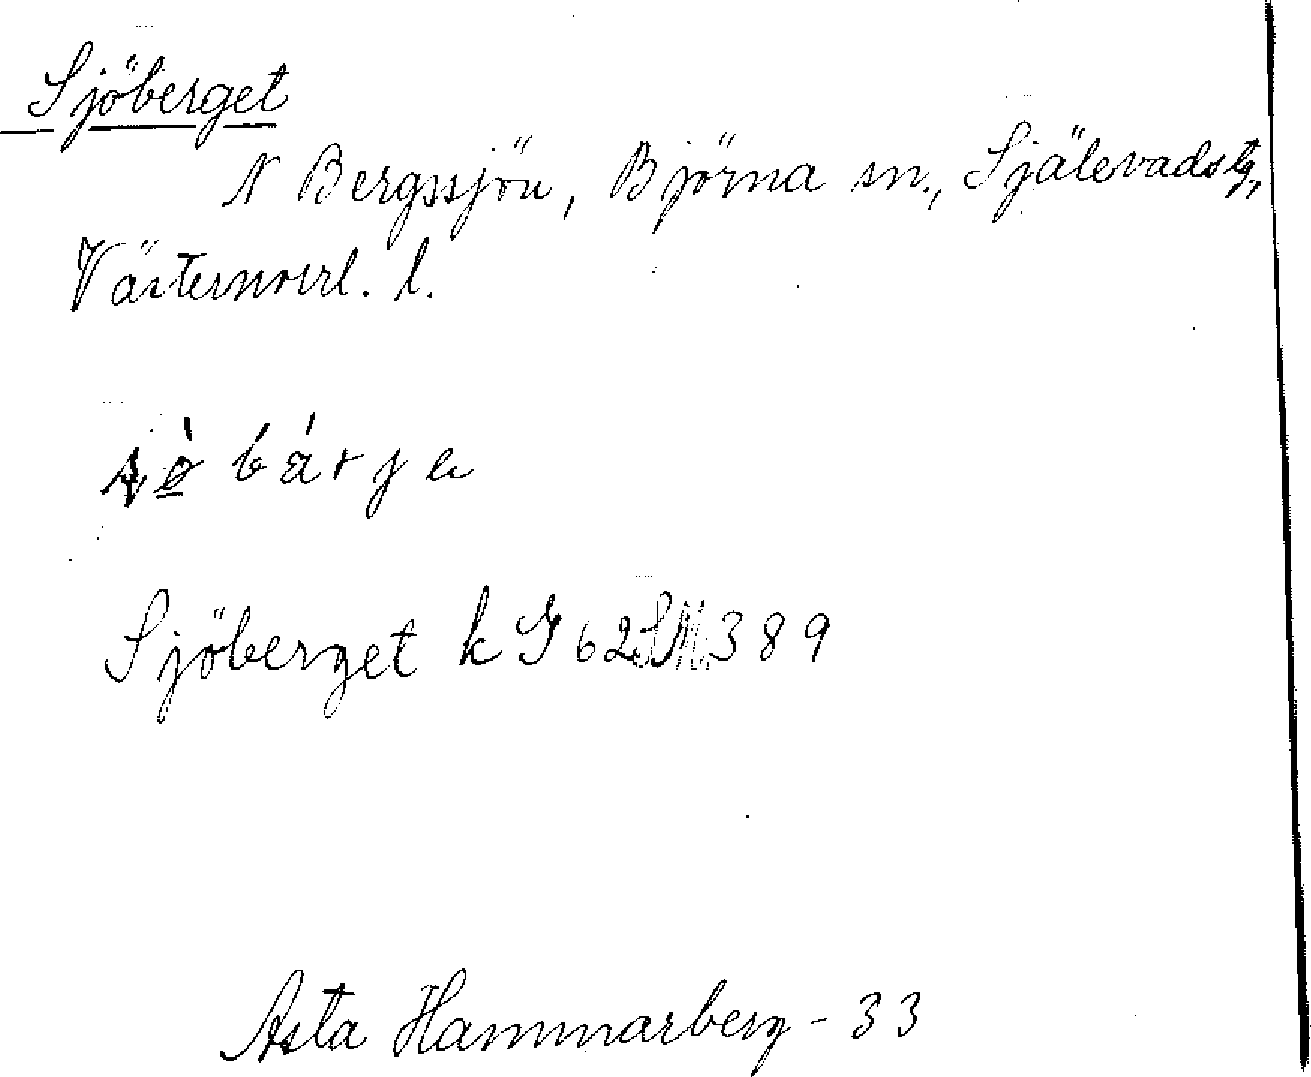 Sjöberget
N Bergssjön, Björna sn., Själevads tg.,
Västernorrl. l.
Sjöberget k G 62 SM. 389
Asta Hammarberg - 33